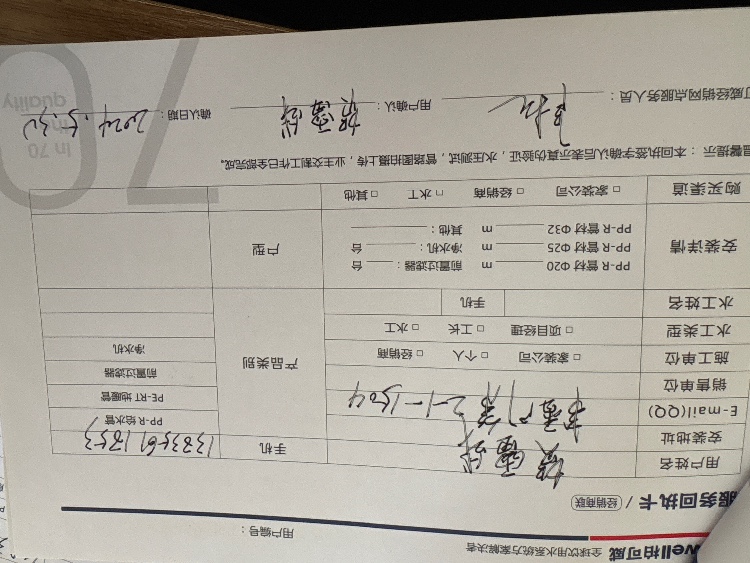 well柏可威 全球饮用水系统方案解决者
用户编号：
服务回执卡 / 经销商联
用户姓名 手机 13835691853
安装地址 PP-R 给水管
E-mail(QQ) 2-1-1504 PE-RT 地暖管
销售单位 前置过滤器
施工单位 □ 家装公司 □ 个人 □ 经销商 产品类别 净水机
水工类型 □ 项目经理 □ 工长 □ 水工
水工姓名 手机
安装详情 PP-R 管材 Φ20 m 前置过滤器： 台 户型
PP-R 管材 Φ25 m 净水机： 台
PP-R 管材 Φ32 m 其他：
购买渠道 □ 家装公司 □ 经销商 □ 水工 □ 其他
温馨提示：本回执回签字确认后表示真伪验证，水压测试，管路图拍摄上传，业主交割工作日全部完成。
可威经销网点服务人员： 用户确认： 确认日期：2024.5.30
70
In 70
quality